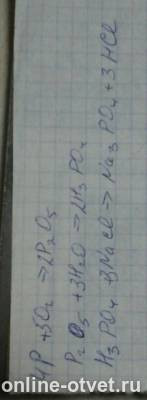 4P + 5O₂ => 2P₂O₅
P₂O₅ + 3H₂O => 2H₃PO₄
H₃PO₄ + 3NaCl => Na₃PO₄ + 3HCl
online-otvet.ru